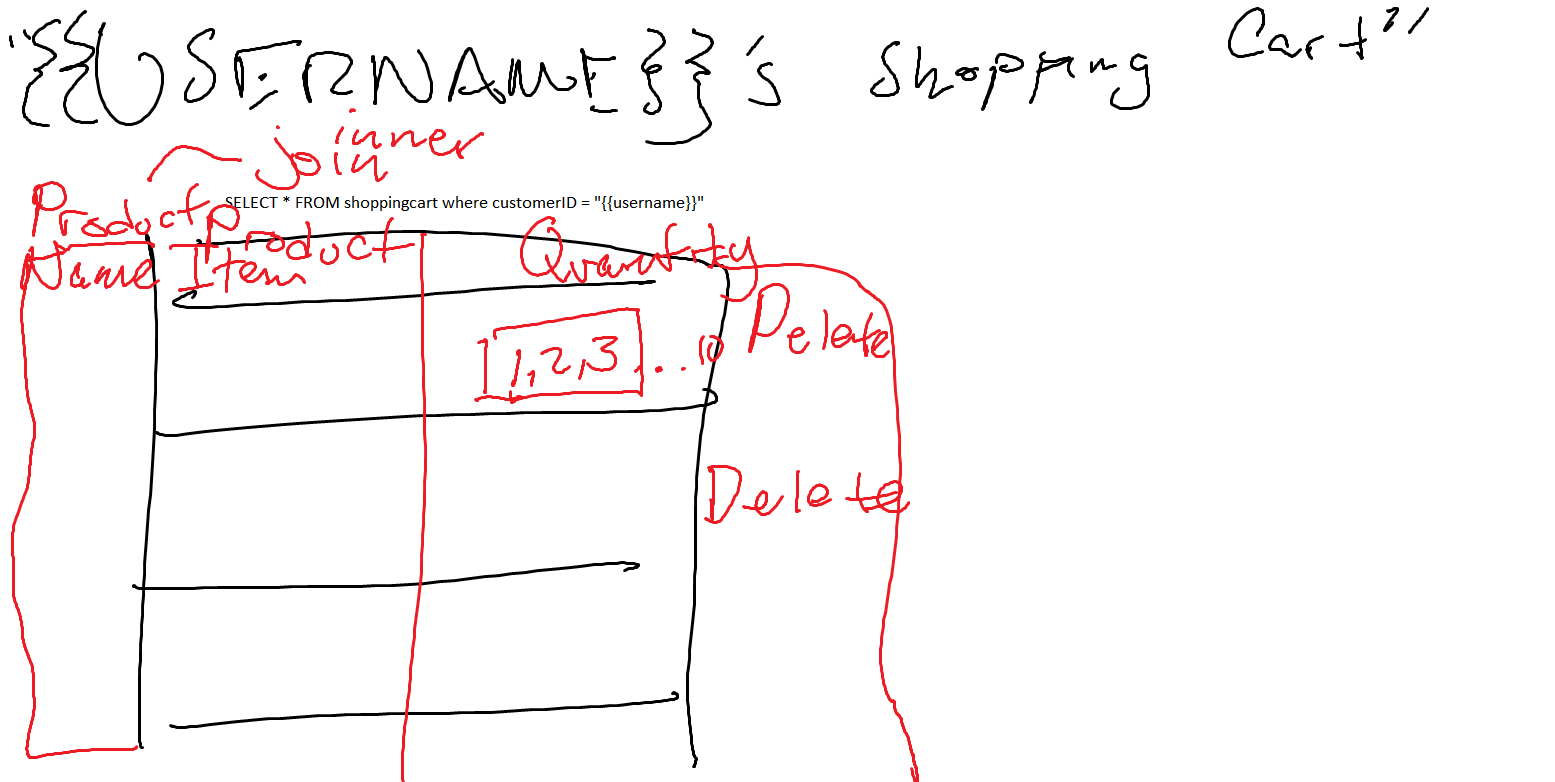 "{{USERNAME}}'s Shopping Cart"
inner
join
SELECT * FROM shoppingcart where customerID = "{{username}}"
Product Product Quantity
Name Item
1,2,3...10 Delete
Delete